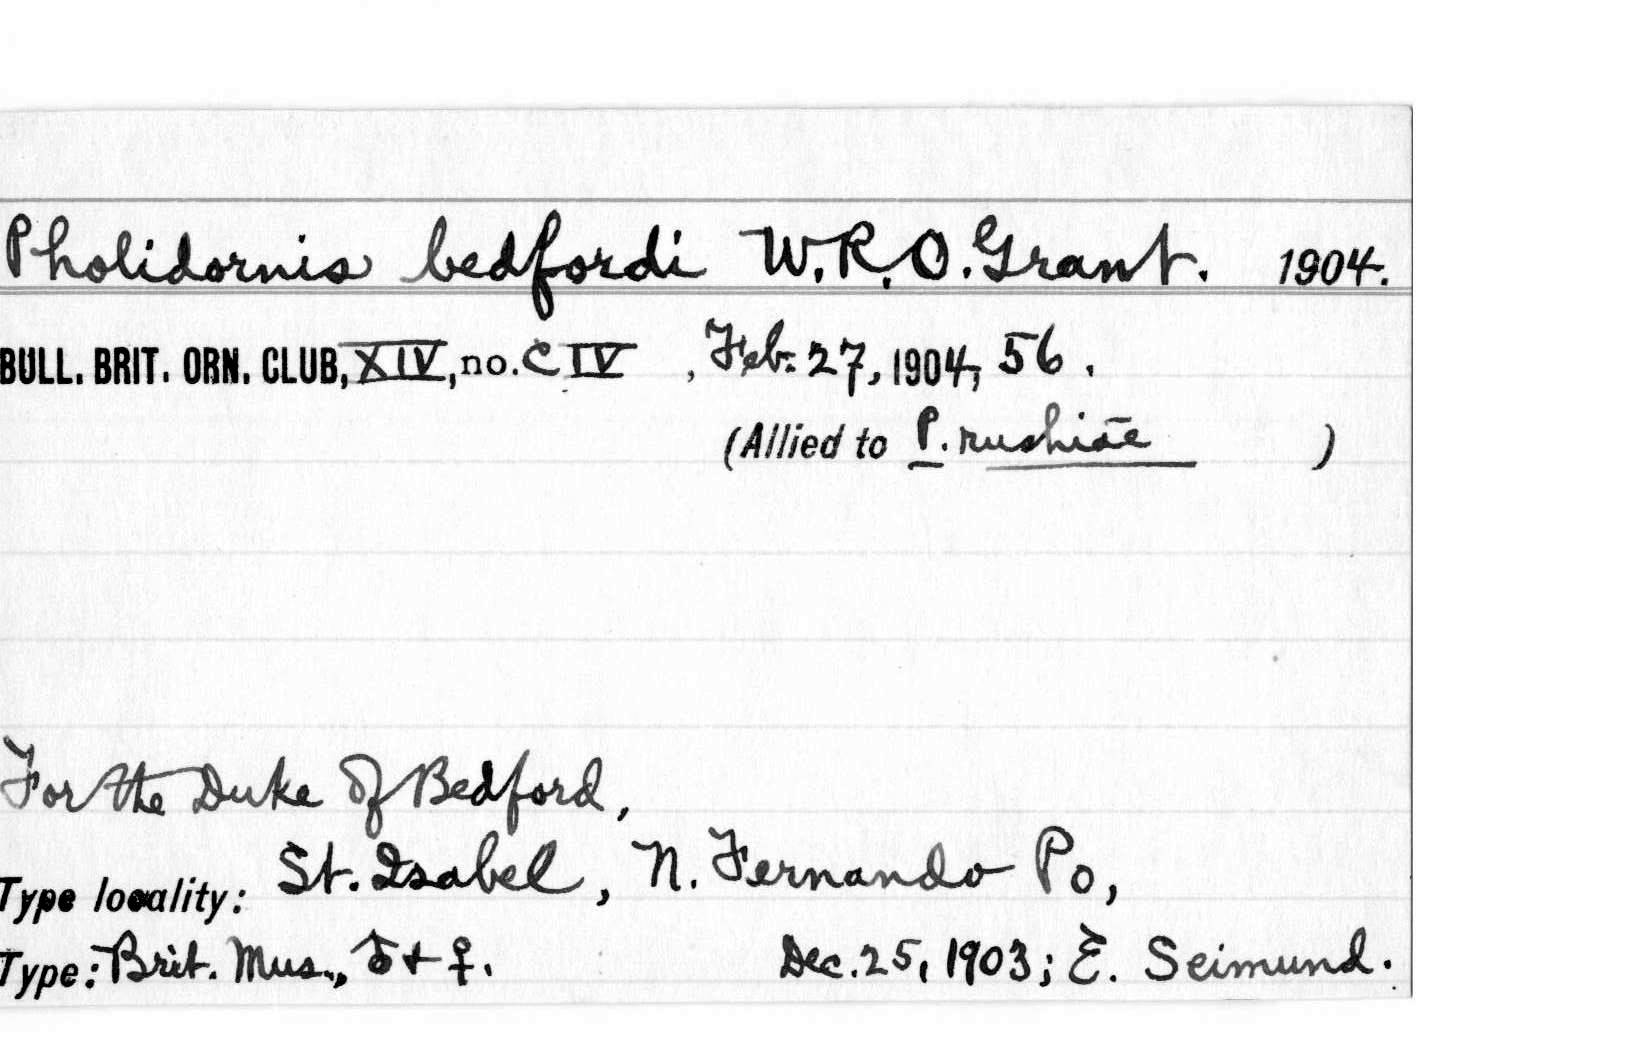 Pholidornis bedfordi W.R.O.Grant. 1904.
BULL. BRIT. ORN. CLUB, XIV, no. CIV , Feb. 27, 1904, 56 .
(Allied to P. rushiae )
For the Duke of Bedford,
Type locality: St. Isabel, N. Fernando Po,
Type: Brit. Mus., ♂ + ♀. Dec. 25, 1903; E. Seimund.